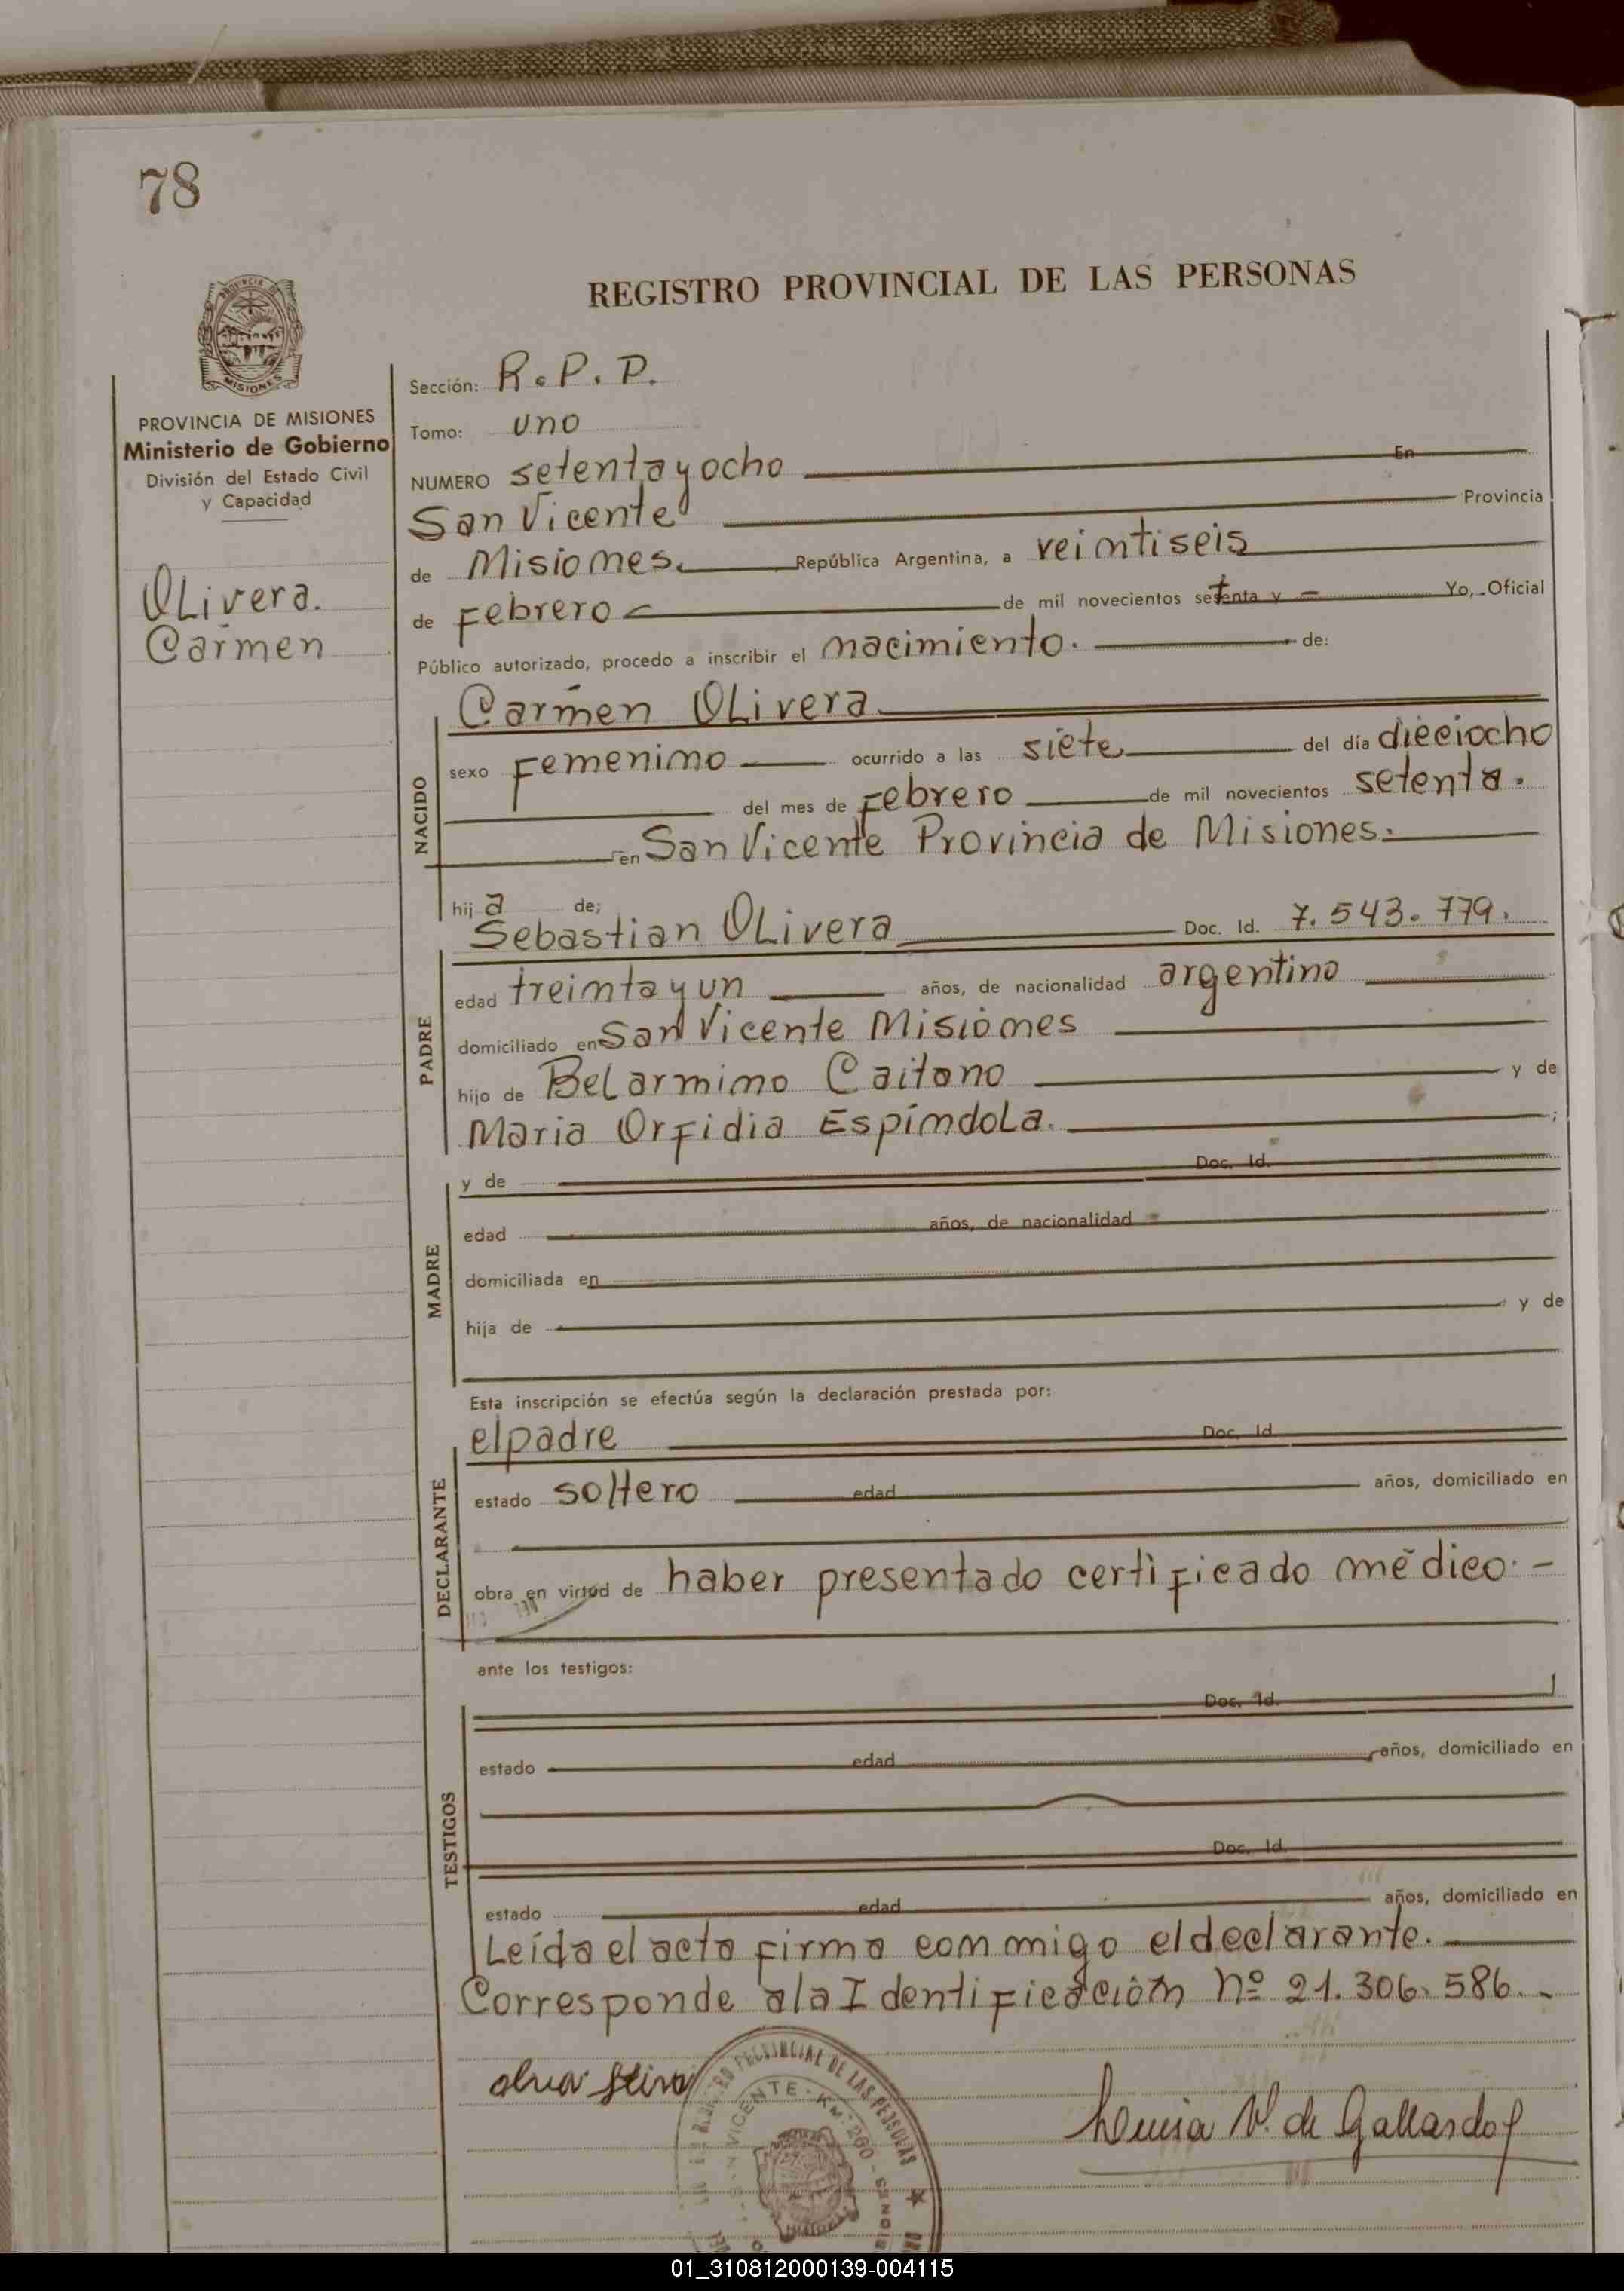 78
REGISTRO PROVINCIAL DE LAS PERSONAS
MISIONES
PROVINCIA DE MISIONES
Ministerio de Gobierno
División del Estado Civil
y Capacidad
OLivera.
Carmen
Sección: R.P.P.
Tomo: uno
NUMERO setenta y ocho En
San Vicente Provincia
de Misiones. República Argentina, a veintiseis
de Febrero de mil novecientos setenta y Yo, Oficial
Público autorizado, procedo a inscribir el nacimiento. de:
NACIDO
Carmen OLivera
sexo Femenino ocurrido a las siete del día dieciocho
del mes de Febrero de mil novecientos setenta.
en San Vicente Provincia de Misiones.
hija de;
PADRE
Sebastian OLivera Doc. Id. 7.543.779.
edad treinta y un años, de nacionalidad argentino
domiciliado en San Vicente Misiones
hijo de BeLarmino Caitano y de
Maria Orfidia EspíndoLa. ;
MADRE
y de Doc. Id.
edad años, de nacionalidad
domiciliada en
hija de y de
Esta inscripción se efectúa según la declaración prestada por:
DECLARANTE
el padre Doc. Id
estado soltero edad años, domiciliado en
obra en virtud de haber presentado certificado médico. -
ante los testigos:
TESTIGOS
Doc. Id.
estado edad años, domiciliado en
Doc. Id.
estado edad años, domiciliado en
Leída el acta firma conmigo el declarante.
Corresponde a la Identificación nº 21.306.586.-
PROVINCIAL DE LAS PERSONAS
VICENTE - KM. 260 -
Luisa V. de Gallardo
01_310812000139-004115